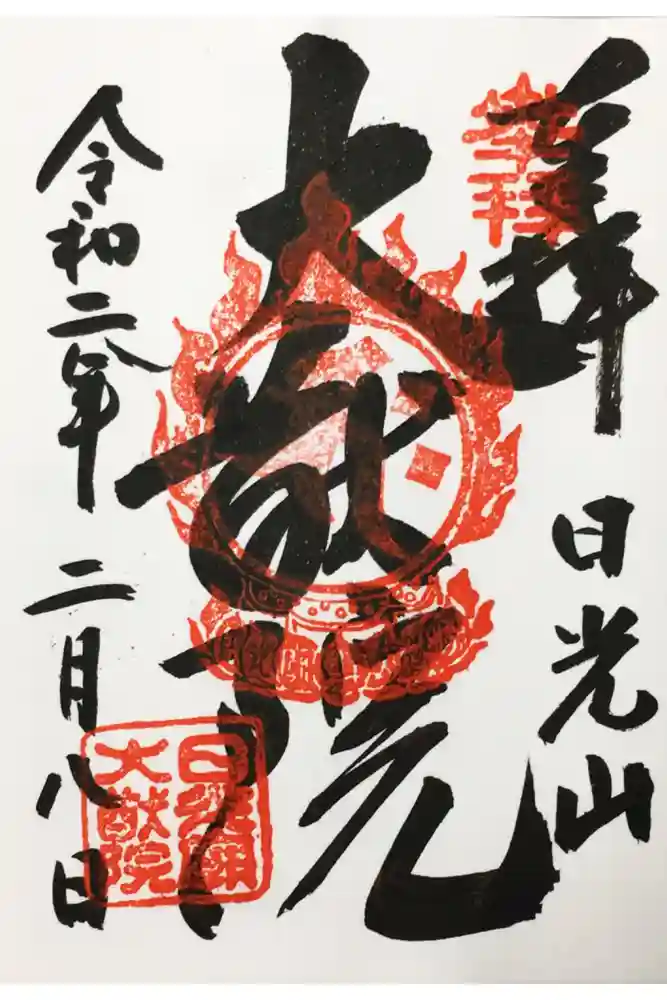 奉拝
日光山
大猷院
令和二年
二月八日
大猷院